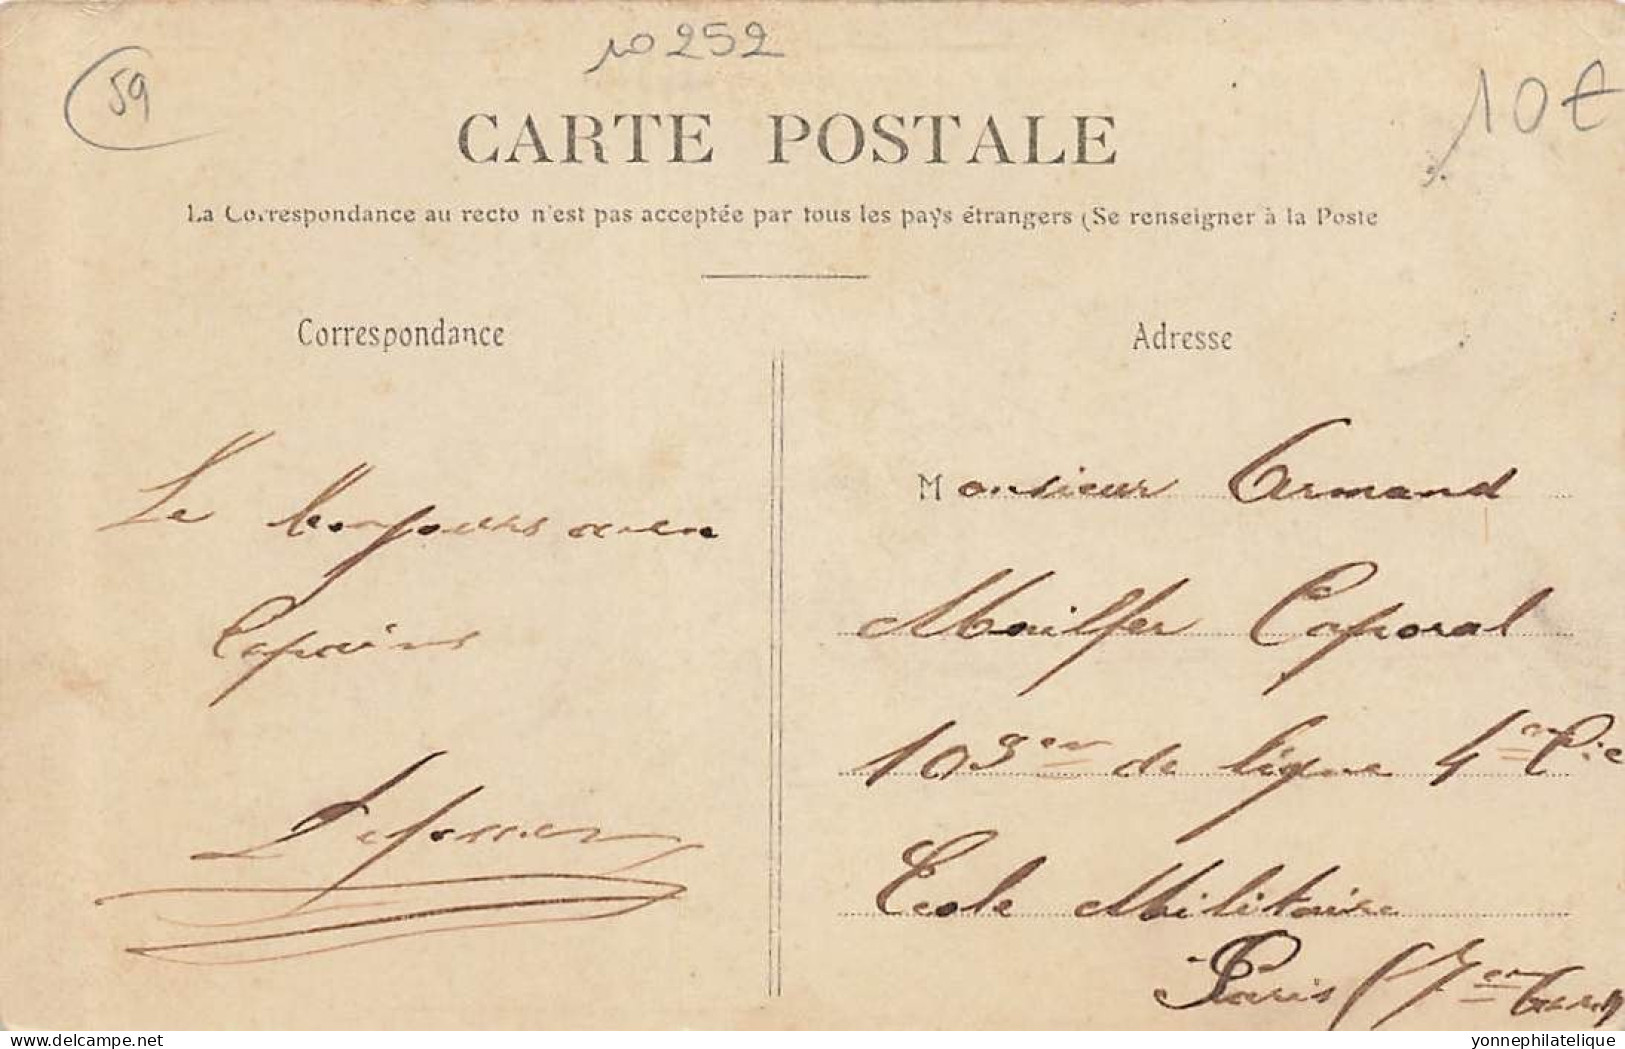 10252
59
10€
CARTE POSTALE
La Correspondance au recto n'est pas acceptée par tous les pays étrangers (Se renseigner à la Poste
Correspondance
Adresse
Le bonjours aux
Copains
Monsieur Armand
Mailfer Caporal
103em de ligne 4em Cie
Ecole Militaire
Paris (7em
delcampe.net
yonnephilatelique